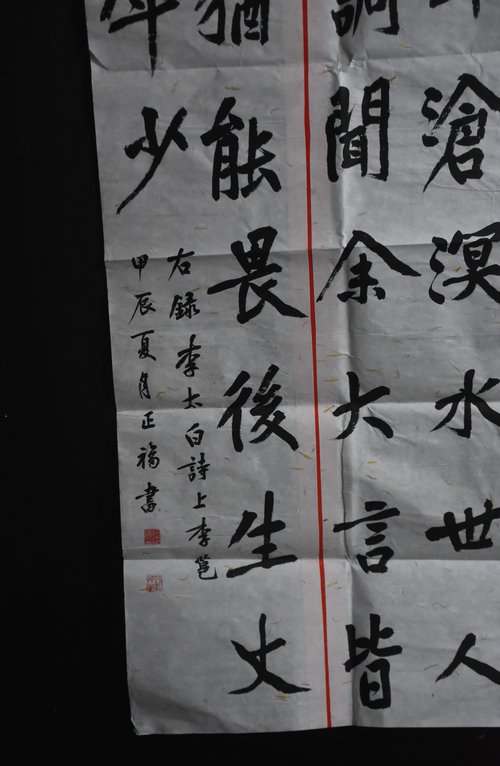 滄溟水世人
調聞余大言皆
猶能畏後生丈
年少
右錄李太白詩上李邕
甲辰夏月正福書